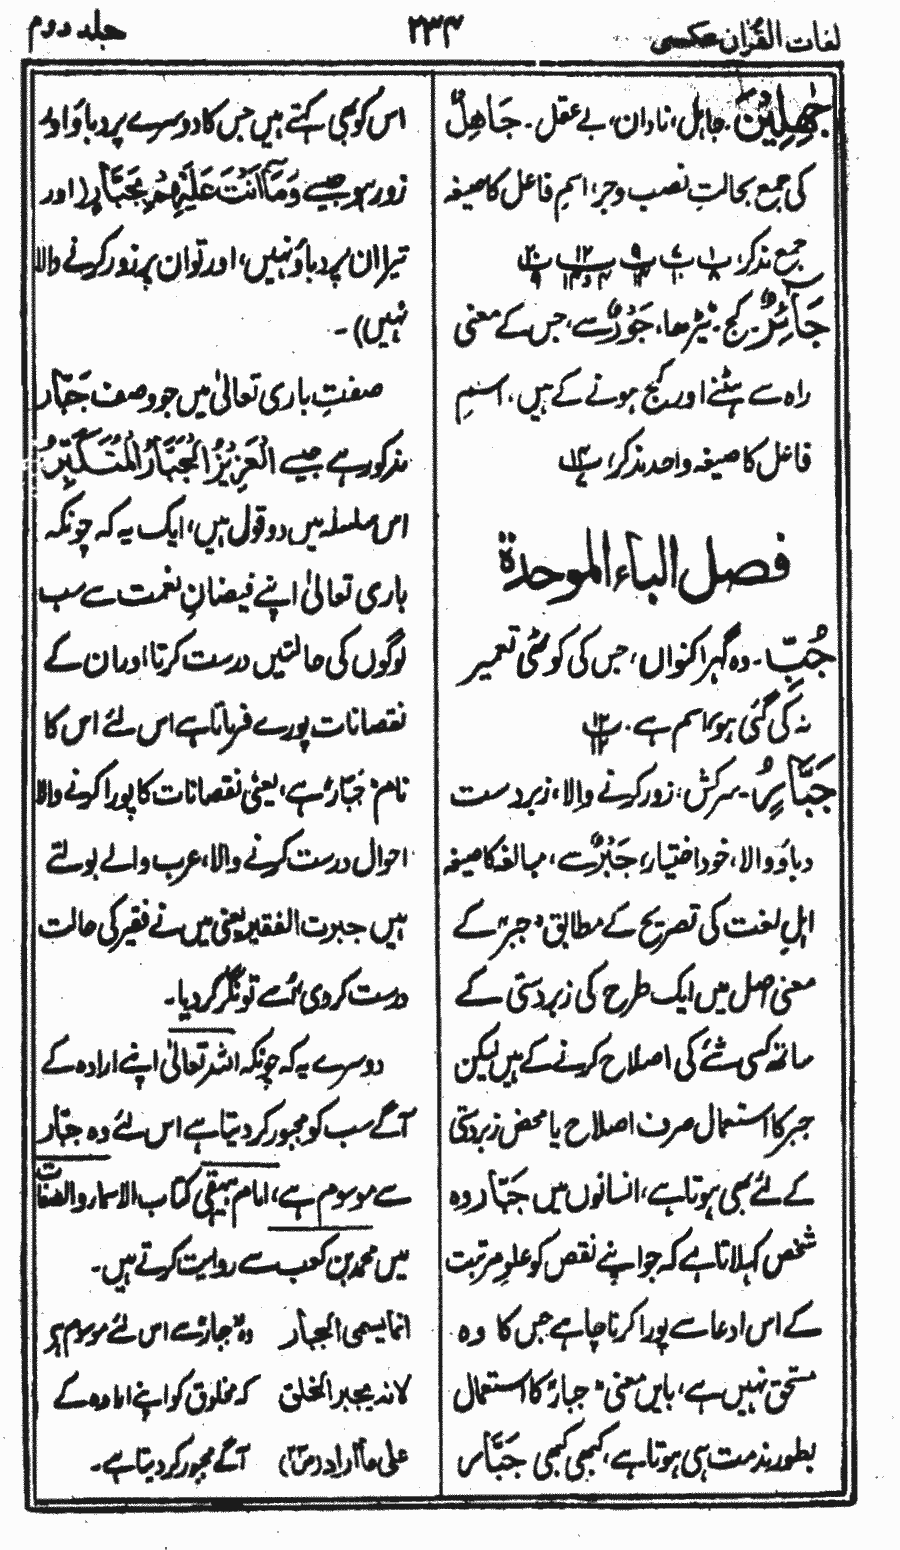 لغات القرآن عکسی
۲۳۴
جلد دوم
جٰهِلِیْنَ۔ جاہل، نادان، بے عقل۔ جَاهِلٌ
کی جمع بحالتِ نصب و جر، اسم فاعل کا صیغہ
جمع مذکر،
جَآئِرٌ۔ کج۔ ٹیڑھا، جَوْرٌ سے، جس کے معنی
راہ سے ہٹنے اور کج ہونے کے ہیں۔ اسم
فاعل کا صیغہ واحد مذکر، ۱۴
فصل الباء الموحدة
جُبّ۔ وہ گہرا کنواں، جس کی کوٹھی تعمیر
نہ کی گئی ہو، اسم ہے۔ ۱۲
جَبَّارٌ۔ سرکش، زور کرنے والا، زبردست
دباؤ والا، خود اختیار، جَبْرٌ سے، مبالغہ کا صیغہ
اہلِ لغت کی تصریح کے مطابق "جبر" کے
معنی اصل میں ایک طرح کی زبردستی کے
ساتھ کسی شئے کی اصلاح کرنے کے ہیں لیکن
جبر کا استعمال صرف اصلاح یا محض زبردستی
کے لئے بھی ہوتا ہے، انسانوں میں جَبّار وہ
شخص کہلاتا ہے کہ جو اپنے نقص کو علوِ مرتبت
کے اس ادعا سے پورا کرنا چاہے جس کا وہ
مستحق نہیں ہے، بایں معنی جبار کا استعمال
بطور مذمت ہی ہوتا ہے، کبھی کبھی جَبَّار
اس کو بھی کہتے ہیں جس کا دوسرے پر دباؤ اور
زور ہو جیسے وَمَآ اَنْتَ عَلَیْهِمْ بِجَبَّارٍ (اور
تیرا ان پر دباؤ نہیں، اور تو ان پر زور کرنے والا
نہیں)۔
صفتِ باری تعالیٰ میں جو وصف جَبّار
مذکور ہے جیسے الْعَزِیْزُ الْجَبَّارُ الْمُتَكَبِّرُ
اس سلسلہ میں دو قول ہیں، ایک یہ کہ چونکہ
باری تعالیٰ اپنے فیضانِ نعمت سے سب
لوگوں کی حالتیں درست کرتا، اور ان کے
نقصانات پورے فرماتا ہے اس لئے اس کا
نام جَبّار ہے، یعنی نقصانات کا پورا کرنے والا
احوال درست کرنے والا، عرب والے بولتے
ہیں جبرت الفقیر یعنی میں نے فقیر کی حالت
درست کردی اُسے تونگر کردیا۔
دوسرے یہ کہ چونکہ اللہ تعالیٰ اپنے ارادہ کے
آگے سب کو مجبور کردیتا ہے اس لئے وہ جبّار
سے موسوم ہے، امام بیہقی کتاب الاسماء والصفات
میں محمد بن کعب سے روایت کرتے ہیں۔
انما یسمی الجبار وہ جبار سے اس لئے موسوم ہے
لانہ یجبر الخلق کہ مخلوق کو اپنے ارادہ کے
علی ما اراد (ص۲۳) آگے مجبور کردیتا ہے۔